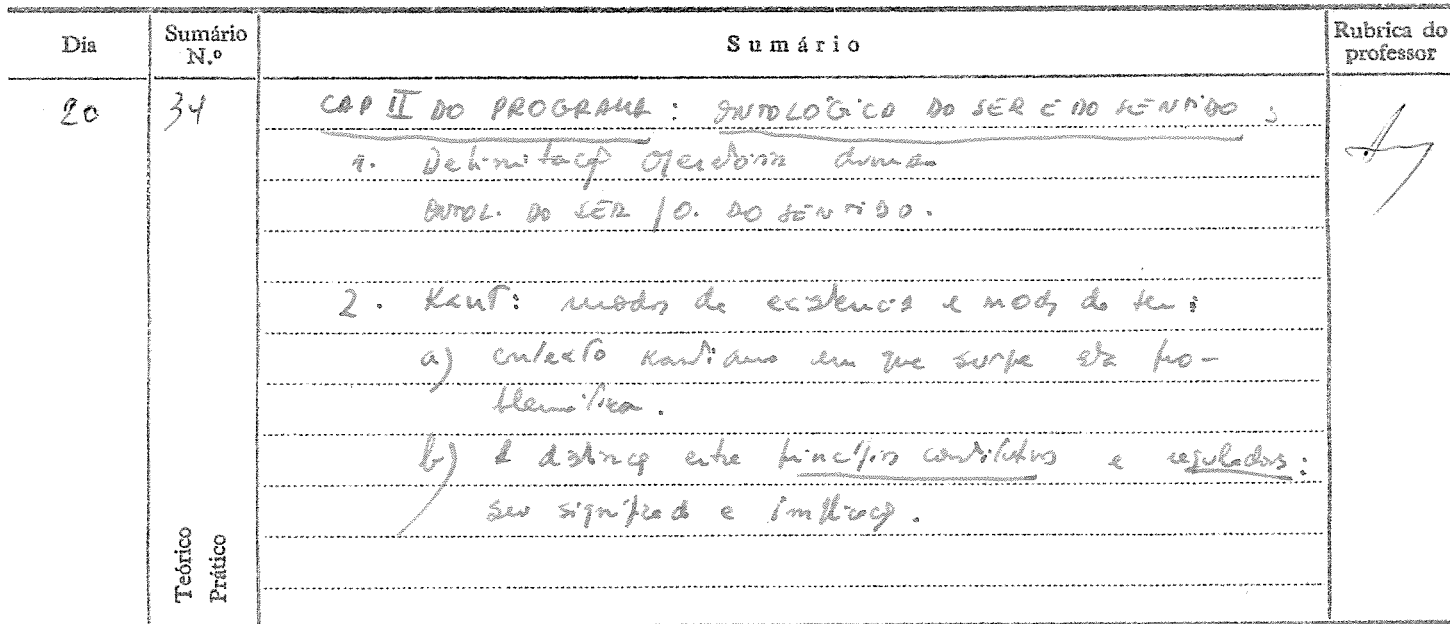 Dia
Sumário N.º
Sumário
Rubrica do professor
20
34
CAP II DO PROGRAMA : ONTOLÓGICA DO SER E DO SENTIDO ;
1. Delimitaçã operatória duma
ONTOL. DO SER / O. DO SENTIDO.
2. Kant: modos de existência e modos de ser:
a) contexto Kantiano em que surge esta pro-
blemática.
b) A distinçã entre princípios constitutivos e reguladores:
seu significado e implicaçã.
Teórico
Prático